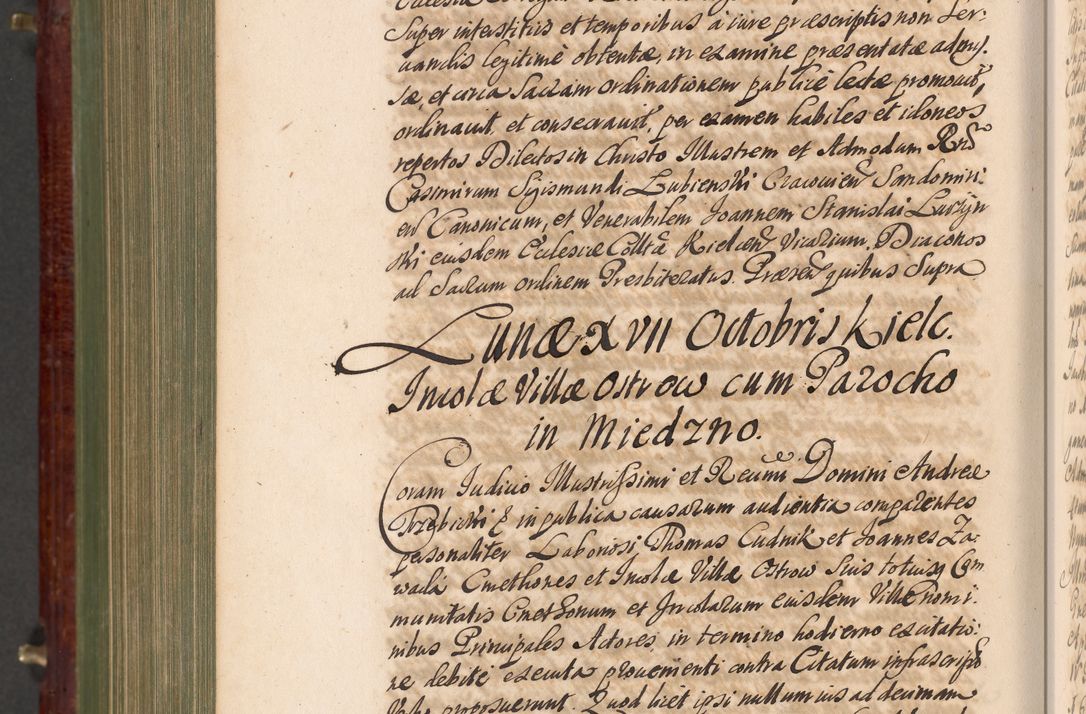 Super interstitiis et temporibus a iure præscriptis non ser-
uandis legitimè obtentæ, in examine præsentatæ ad
sæ, et circa Sacram ordinationem publicè lectæ promouit,
ordinauit et consecrauit, per examen habiles et idoneos
repertos Dilectos in Christo Illustrem et Admodum Rnd
Casimirum Sigismundi Lubienski Cracouien Sandomiri-
en Canonicum, et Venerabilem Joannem Stanislai Luczyn
ski eiusdem Ecclesiæ Colltæ Kielcen Vicarium, Diaconos
ad Sacrum ordinem Presbiteratus. Præsen quibus Supra
Lunæ XVII Octobris Kielc.
Incolæ Villæ Ostrow cum Parocho
in Miedzno.
Coram Judicio Illustrissimi et Reumi Domini Andreæ
Trzebicki & in publica causarum audientia comparentes
personaliter Laboriosi Thomas Cudnik et Joannes Za-
wada Cmethones et Incolæ Villæ Ostrow suis totiusq Com
munitatis Cmethonum et Incolarum eiusdem Villæ nomi-
nibus Principales Actores, in termino hodierno ex citatio-
ne debitè executa prouenienti contra Citatum infrascrip
proposuerunt. Quod licet ipsi nullum ius ad decimam